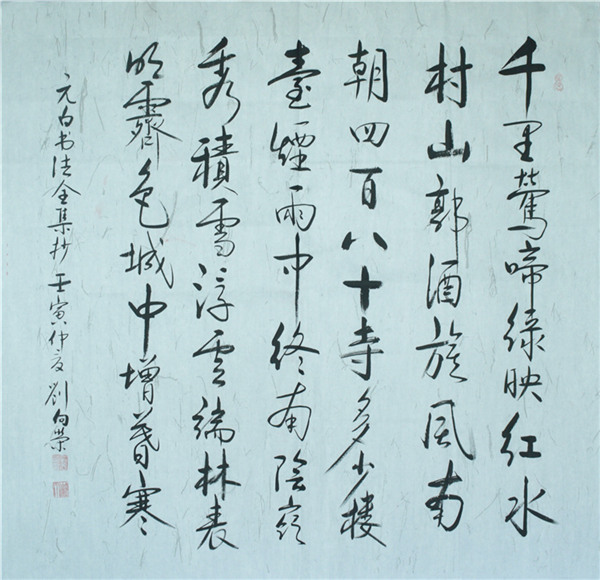 千里莺啼绿映红水
村山郭酒旗风南
朝四百八十寺多少楼
臺煙雨中终南陰嶺
秀積雪浮雲端林表
明霽色城中增暮寒
元白书法全集抄壬寅仲夏刘向荣